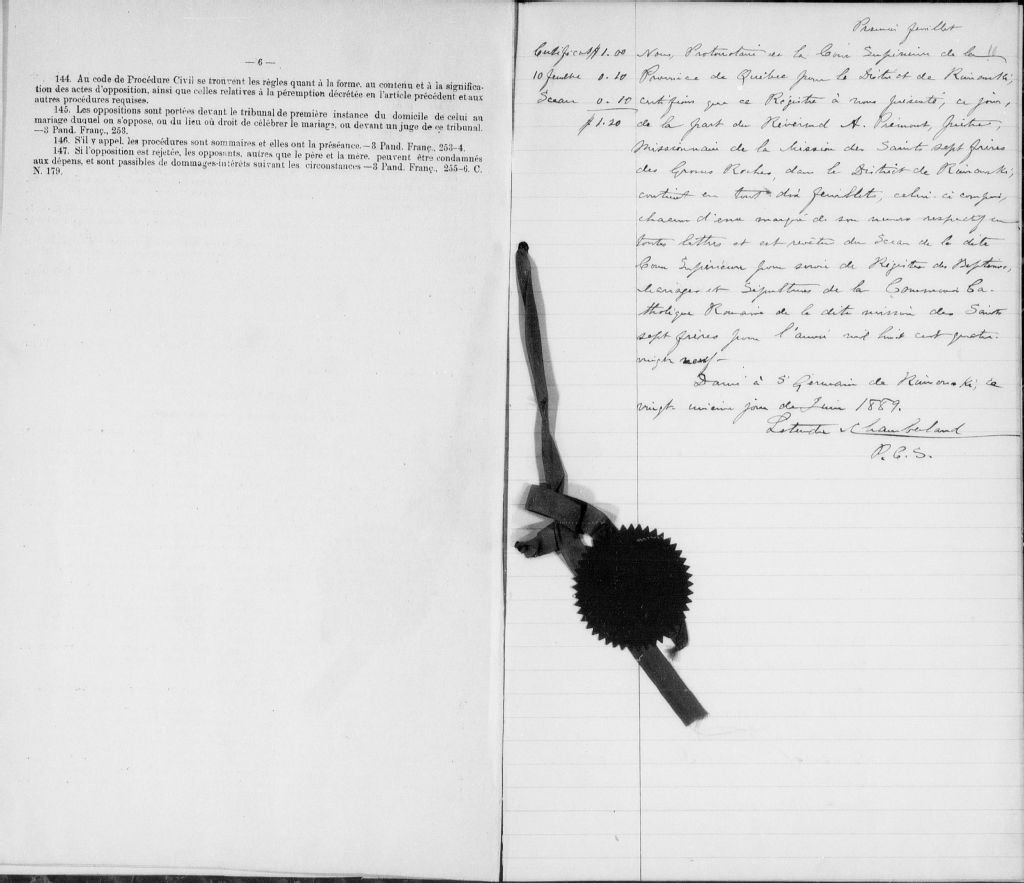 — 6 —
144. Au code de Procédure Civil se trouvent les règles quant à la forme, au contenu et à la significa-
tion des actes d'opposition, ainsi que celles relatives à la péremption décrétée en l'article précédent et aux
autres procédures requises.
145. Les oppositions sont portées devant le tribunal de première instance du domicile de celui au
mariage duquel on s'oppose, ou du lieu où droit de célébrer le mariage, ou devant un juge de ce tribunal.
—3 Pand. Franç., 253.
146. S'il y appel, les procédures sont sommaires et elles ont la préséance.—3 Pand. Franç., 253-4.
147. Si l'opposition est rejetée, les opposants, autres que le père et la mère, peuvent être condamnés
aux dépens, et sont passibles de dommages-intérêts suivant les circonstances—3 Pand. Franç., 255-6. C.
N. 179.
Premier feuillet
Certificat $1.00
10 feuillets 0.10
Sceau 0.10
$1.20
Nous, Protonotaire de la Cour Supérieure de la
Province de Québec pour le District de Rimouski,
certifions que ce Registre à nous présenté, ce jour,
de la part du Révérend A. Prémont, Prêtre,
Missionnaire de la Mission des Saints sept frères
des Grosses Roches, dans le District de Rimouski,
contient en tout dix feuillets, celui-ci compris,
chacun d'eux marqué de son numéro respectif en
toutes lettres et est revêtu du Sceau de la dite
Cour Supérieure pour servir de Registre des Baptêmes,
Mariages et Sépultures de la Commune Ca-
tholique Romaine de la dite mission des Saints
sept frères pour l'année mil huit cent quatre-
vingt neuf—
Donné à St Germain de Rimouski, ce
vingt unième jour de Juin 1889.
Letendre & Chamberland
P.C.S.